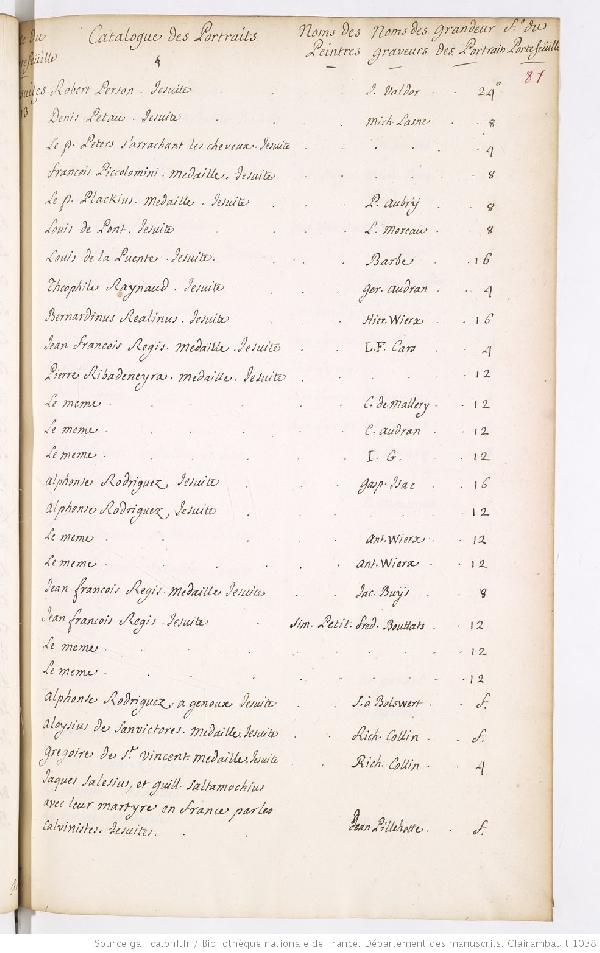 Catalogue des Portraits Noms des Noms des grandeur f.° du
Peintres graveurs des Portrain Portefeüille
4
87
Robert Person. Jesuite J. Valdor 24°
Denis Petau. Jesuite Mich. Lasne 8
Le p. Peters s'arrachant les cheveux. Jesuite 4
françois Piccolomini. medaille. Jesuite 8
Le p. Plackius. medaille. Jesuite P. Aubry 8
Louis de Pont. Jesuite L. Moreau 8
Louis de la Puente. Jesuite. Barbe 16
Theophile Raynaud. Jesuite Ger. Audran 4
Bernardinus Realinus. Jesuite Hier. Wierx 16
Jean francois Regis. medaille. Jesuite L.F. Cars 4
Pierre Ribadeneyra. medaille. Jesuite 12
Le meme C. de Mallery 12
Le meme C. Audran 12
Le meme I. G. 12
alphonse Rodriguez, Jesuite Gasp. Isac 16
alphonse Rodriguez, Jesuite 12
Le meme Ant. Wierx 12
Le meme Ant. Wierx 12
Jean francois Regis. medaille Jesuite Jac. Buÿs 8
Jean francois Regis. Jesuite Sim. Petit. fred. Bouttats 12
Le meme 12
Le meme 12
alphonse Rodriguez, a genoux Jesuite S. à Bolswert f.
aloysius de Sanvictores. medaille, Jesuite Rich. Collin f.
gregoire de St. Vincent medaille, Jesuite Rich. Collin 4
Jaques Salesius, et guill. Saltamochius
avec leur martyre en france par les
calvinistes. Jesuites. Jean Pillehotte f.
Source gallica.bnf.fr / Bibliothèque nationale de France. Département des manuscrits. Clairambault 1038